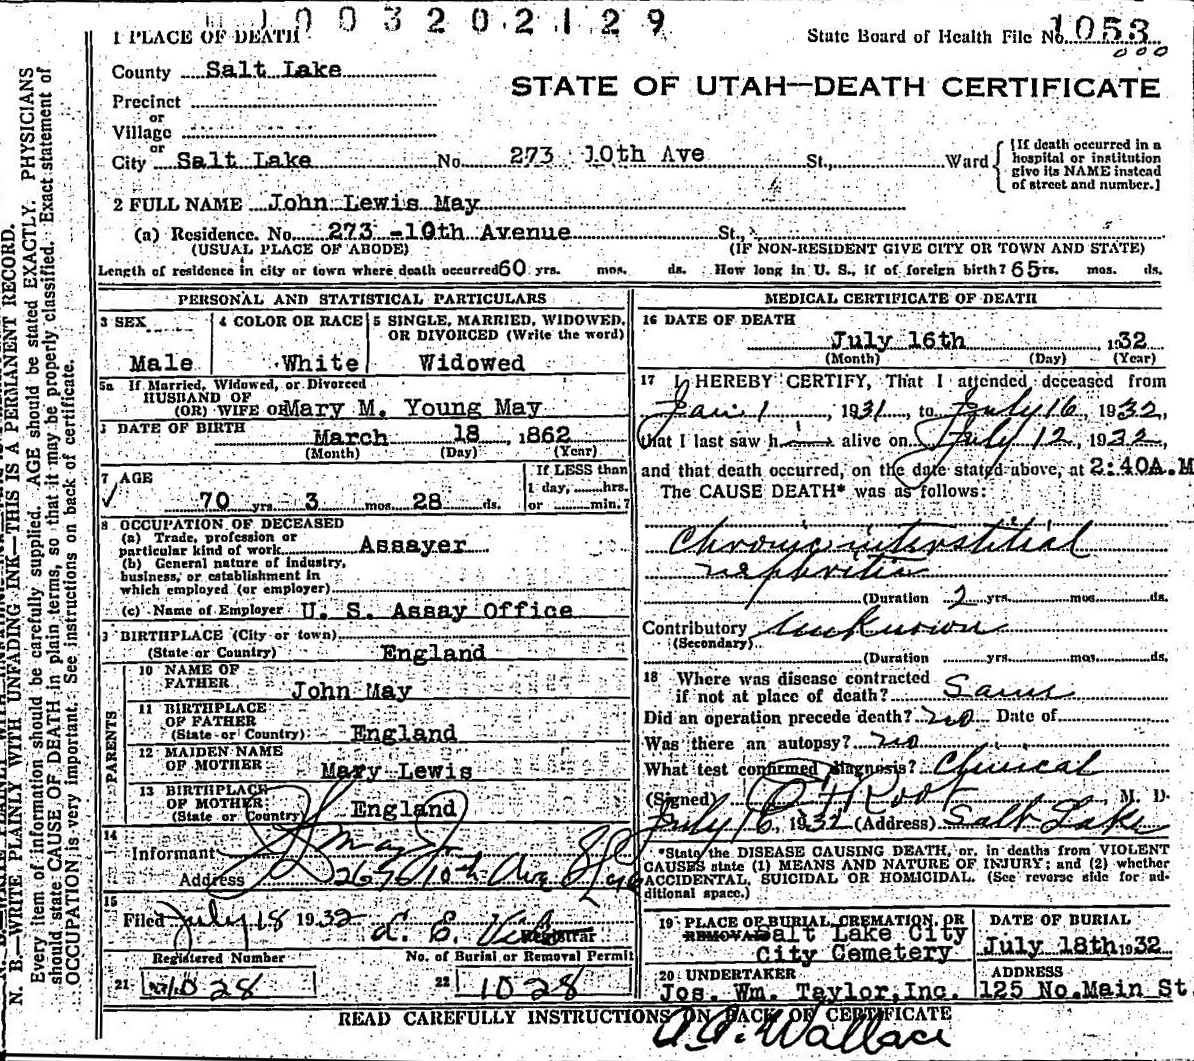 1003202129
1 PLACE OF DEATH
State Board of Health File No. 1053
County Salt Lake
000
STATE OF UTAH—DEATH CERTIFICATE
Precinct
or
Village
or
City Salt Lake No. 273 10th Ave St., Ward
[If death occurred in a hospital or institution give its NAME instead of street and number.]
2 FULL NAME John Lewis May
(a) Residence. No. 273 -10th Avenue St.,
(USUAL PLACE OF ABODE) (IF NON-RESIDENT GIVE CITY OR TOWN AND STATE)
Length of residence in city or town where death occurred 60 yrs. mos. ds. How long in U. S., if of foreign birth? 65 rs. mos. ds.
PERSONAL AND STATISTICAL PARTICULARS
3 SEX
Male
4 COLOR OR RACE
White
5 SINGLE, MARRIED, WIDOWED,
OR DIVORCED (Write the word)
Widowed
5a If Married, Widowed, or Divorced
HUSBAND OF
(OR) WIFE OF Mary M. Young May
DATE OF BIRTH
March 18, 1862
(Month) (Day) (Year)
7 AGE
70 yrs. 3 mos. 28 ds.
If LESS than
1 day, hrs.
or min.?
8 OCCUPATION OF DECEASED
(a) Trade, profession or
particular kind of work Assayer
(b) General nature of industry,
business, or establishment in
which employed (or employer)
(c) Name of Employer U. S. Assay Office
9 BIRTHPLACE (City or town)
(State or Country) England
PARENTS
10 NAME OF
FATHER John May
11 BIRTHPLACE
OF FATHER
(State or Country) England
12 MAIDEN NAME
OF MOTHER Mary Lewis
13 BIRTHPLACE
OF MOTHER
(State or Country) England
14
Informant May Jr
Address 10th Ave
15
Filed July 18 1932
Registrar
Registered Number No. of Burial or Removal Permit
21 1028 22 1028
MEDICAL CERTIFICATE OF DEATH
16 DATE OF DEATH
July 16th 1932
(Month) (Day) (Year)
17 I HEREBY CERTIFY, That I attended deceased from
Jan 1, 1931, to July 16, 1932,
that I last saw him alive on July 12, 1932,
and that death occurred, on the date stated above, at 2:40A.M
The CAUSE DEATH* was as follows:
Chronic interstitial
nephritis
(Duration 2 yrs. mos. ds.
Contributory Unknown
(Secondary)
(Duration yrs. mos. ds.
18 Where was disease contracted
if not at place of death? Same
Did an operation precede death? no Date of
Was there an autopsy? no
What test confirmed diagnosis? Clinical
(Signed) Root M. D.
July 16, 1932 (Address) Salt Lake
*State the DISEASE CAUSING DEATH, or, in deaths from VIOLENT
CAUSES state (1) MEANS AND NATURE OF INJURY; and (2) whether
ACCIDENTAL, SUICIDAL OR HOMICIDAL. (See reverse side for ad-
ditional space.)
19 PLACE OF BURIAL, CREMATION, OR
REMOVAL Salt Lake City
City Cemetery
DATE OF BURIAL
July 18th 1932
20 UNDERTAKER
Jos. Wm. Taylor, Inc.
ADDRESS
125 No. Main St
READ CAREFULLY INSTRUCTIONS ON BACK OF CERTIFICATE
Wallace
N. B.—WRITE PLAINLY WITH UNFADING INK—THIS IS A PERMANENT RECORD.
Every item of information should be carefully supplied. AGE should be stated EXACTLY. PHYSICIANS
should state CAUSE OF DEATH in plain terms, so that it may be properly classified. Exact statement of
OCCUPATION is very important. See instructions on back of certificate.